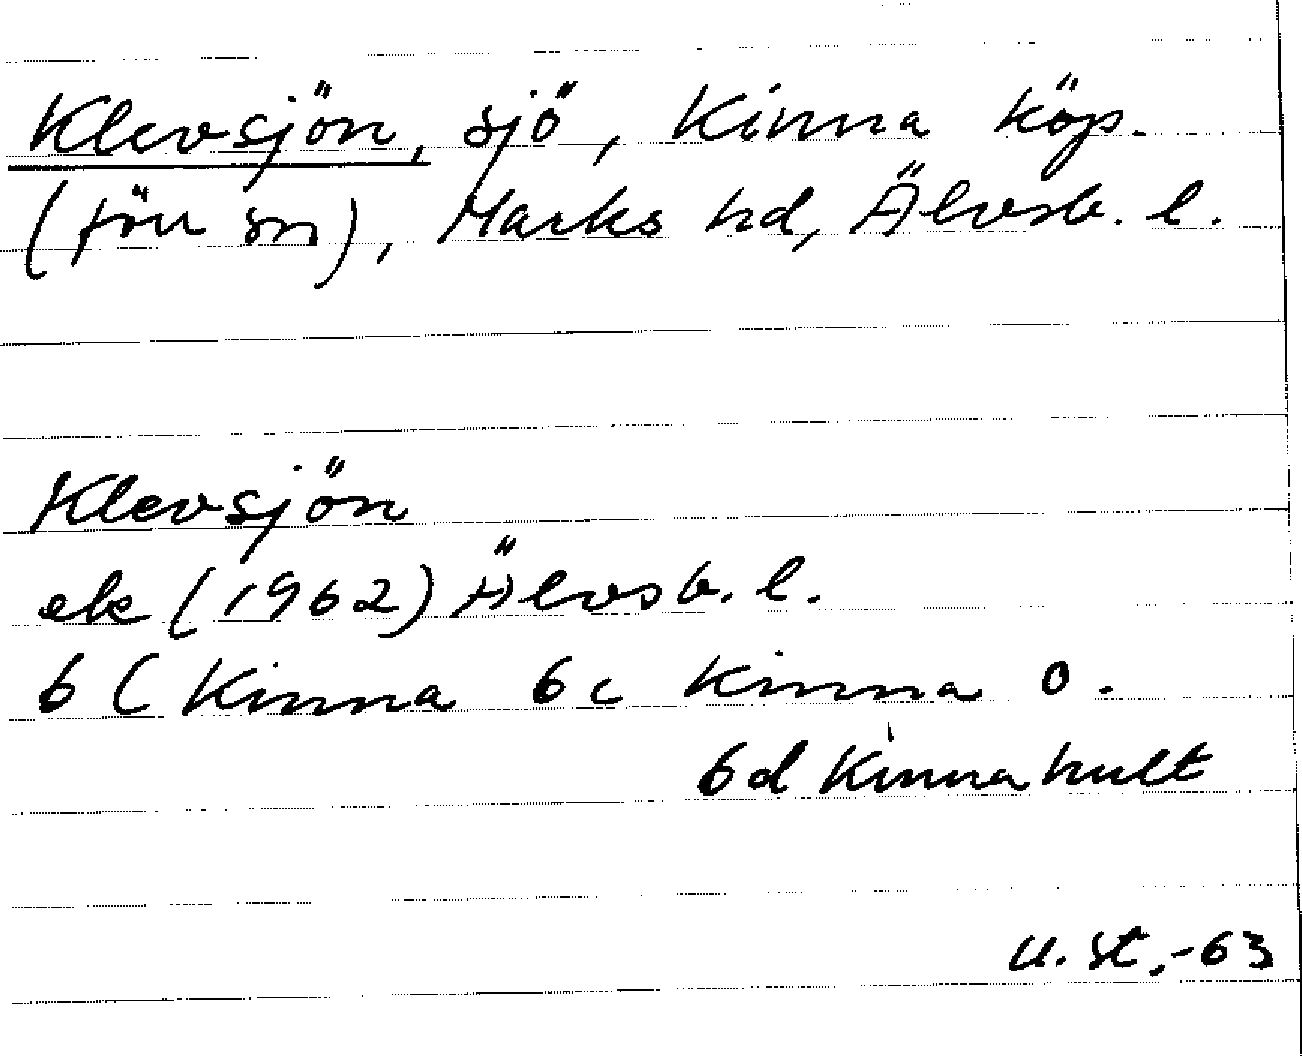 Klevsjön, sjö, Kinna köp.
(förr sn), Marks hd, Älvsb. l.
Klevsjön
ek (1962) Älvsb. l.
6 C Kinna 6c Kinna o.
6d Kinnahult
U. St. -63